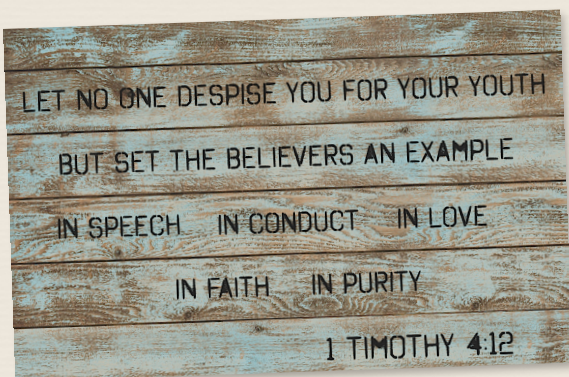 LET NO ONE DESPISE YOU FOR YOUR YOUTH
BUT SET THE BELIEVERS AN EXAMPLE
IN SPEECH IN CONDUCT IN LOVE
IN FAITH IN PURITY
1 TIMOTHY 4:12